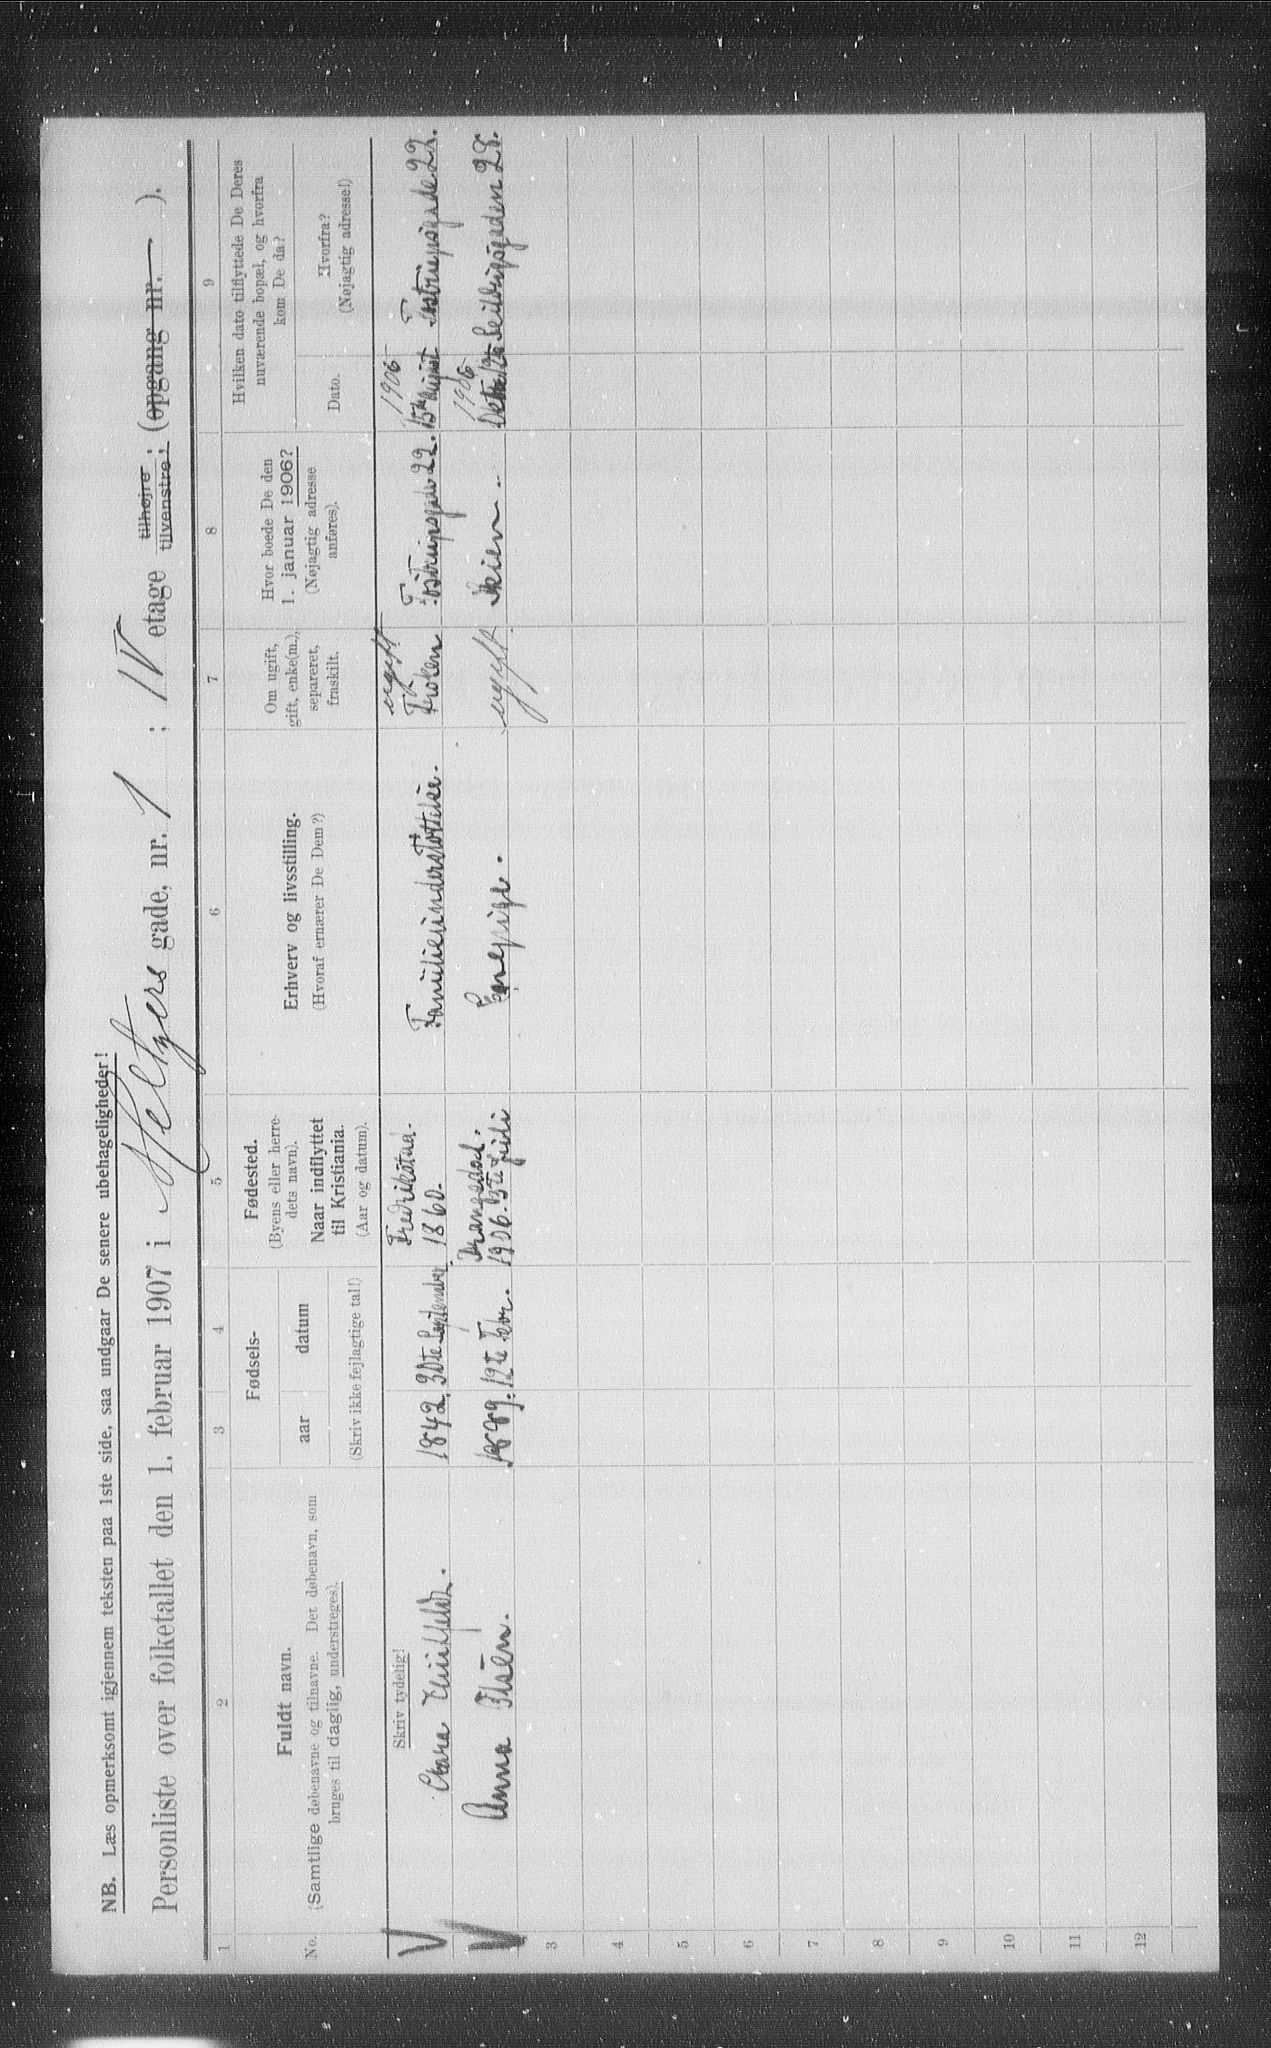 NB. Læs opmerksomt igjennem teksten paa 1ste side, saa undgaar De senere ubehageligheder!
Personliste over folketallet den 1. februar 1907 i Heltzens gade, nr. 1 ; IV etage tilhøjre ; tilvenstre ; (opgang nr. — ).
1 2 3 4 5 6 7 8 9
No.
Fuldt navn.
(Samtlige døbenavne og tilnavne. Det døbenavn, som
bruges til daglig, understreges).
Fødsels-
aar datum
(Skriv ikke fejlagtige tal!)
Fødested.
(Byens eller herre-
dets navn).
Naar indflyttet
til Kristiania.
(Aar og datum).
Erhverv og livsstilling.
(Hvoraf ernærer De Dem?)
Om ugift,
gift, enke(m.),
separeret,
fraskilt.
Hvor boede De den
1. januar 1906?
(Nøjagtig adresse
anføres).
Hvilken dato tilflyttede De Deres
nuværende bopæl, og hvorfra
kom De da?
Dato.
Hvorfra?
(Nøjagtig adresse!)
Skriv tydelig!
V Clara 1842. 30te September Fredrikstad. 1860. Familieunderstøttelse. ugift Frøken Tostrupsgade 22. 1906 15 August Tostrupsgade 22.
V Anna Olsen. 1889. 12te Febr. Drangedal. 1906. Juli Enepige. ugift Skien. 1906 28.
3
4
5
6
7
8
9
10
11
12